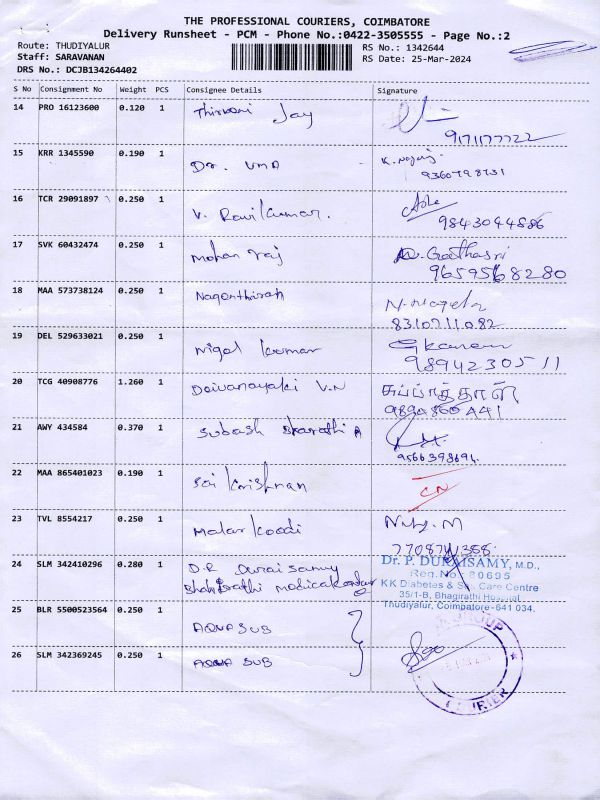 THE PROFESSIONAL COURIERS, COIMBATORE
Delivery Runsheet - PCM - Phone No.:0422-3505555 - Page No.:2
Route: THUDIYALUR
RS No.: 1342644
Staff: SARAVANAN
RS Date: 25-Mar-2024
DRS No.: DCJB134264402
S No Consignment No Weight PCS Consignee Details Signature
14 PRO 16123600 0.120 1 Jay
15 KRR 1345590 0.190 1 Dr. UMA
K. Nagaraj
16 TCR 29091897 0.250 1 V. Ravi Kumar.
9843044886
17 SVK 60432474 0.250 1 Mohan raj
Geethasri
9659568280
18 MAA 573738124 0.250 1
8310711082
19 DEL 529633021 0.250 1 Nigal kumar
9894230511
20 TCG 40908776 1.260 1 Daivanayaki V.N
சுப்பாத்தாள்
21 AWY 434584 0.370 1 Subash Bharathi A
22 MAA 865401023 0.190 1 Sai krishnan
CN
23 TVL 8554217 0.250 1 Malar Kodi
24 SLM 342410296 0.280 1 D.R Durai samy
Dr. P. DURAISAMY, M.D.,
Reg.No: 80695
KK Diabetes & Care Centre
35/1-B, Bhagirathi Hospital
Thudiyalur, Coimbatore-641 034.
25 BLR 5500523564 0.250 1 AQUA SUB
26 SLM 342369245 0.250 1 AQUA SUB
GROUP
COURIER